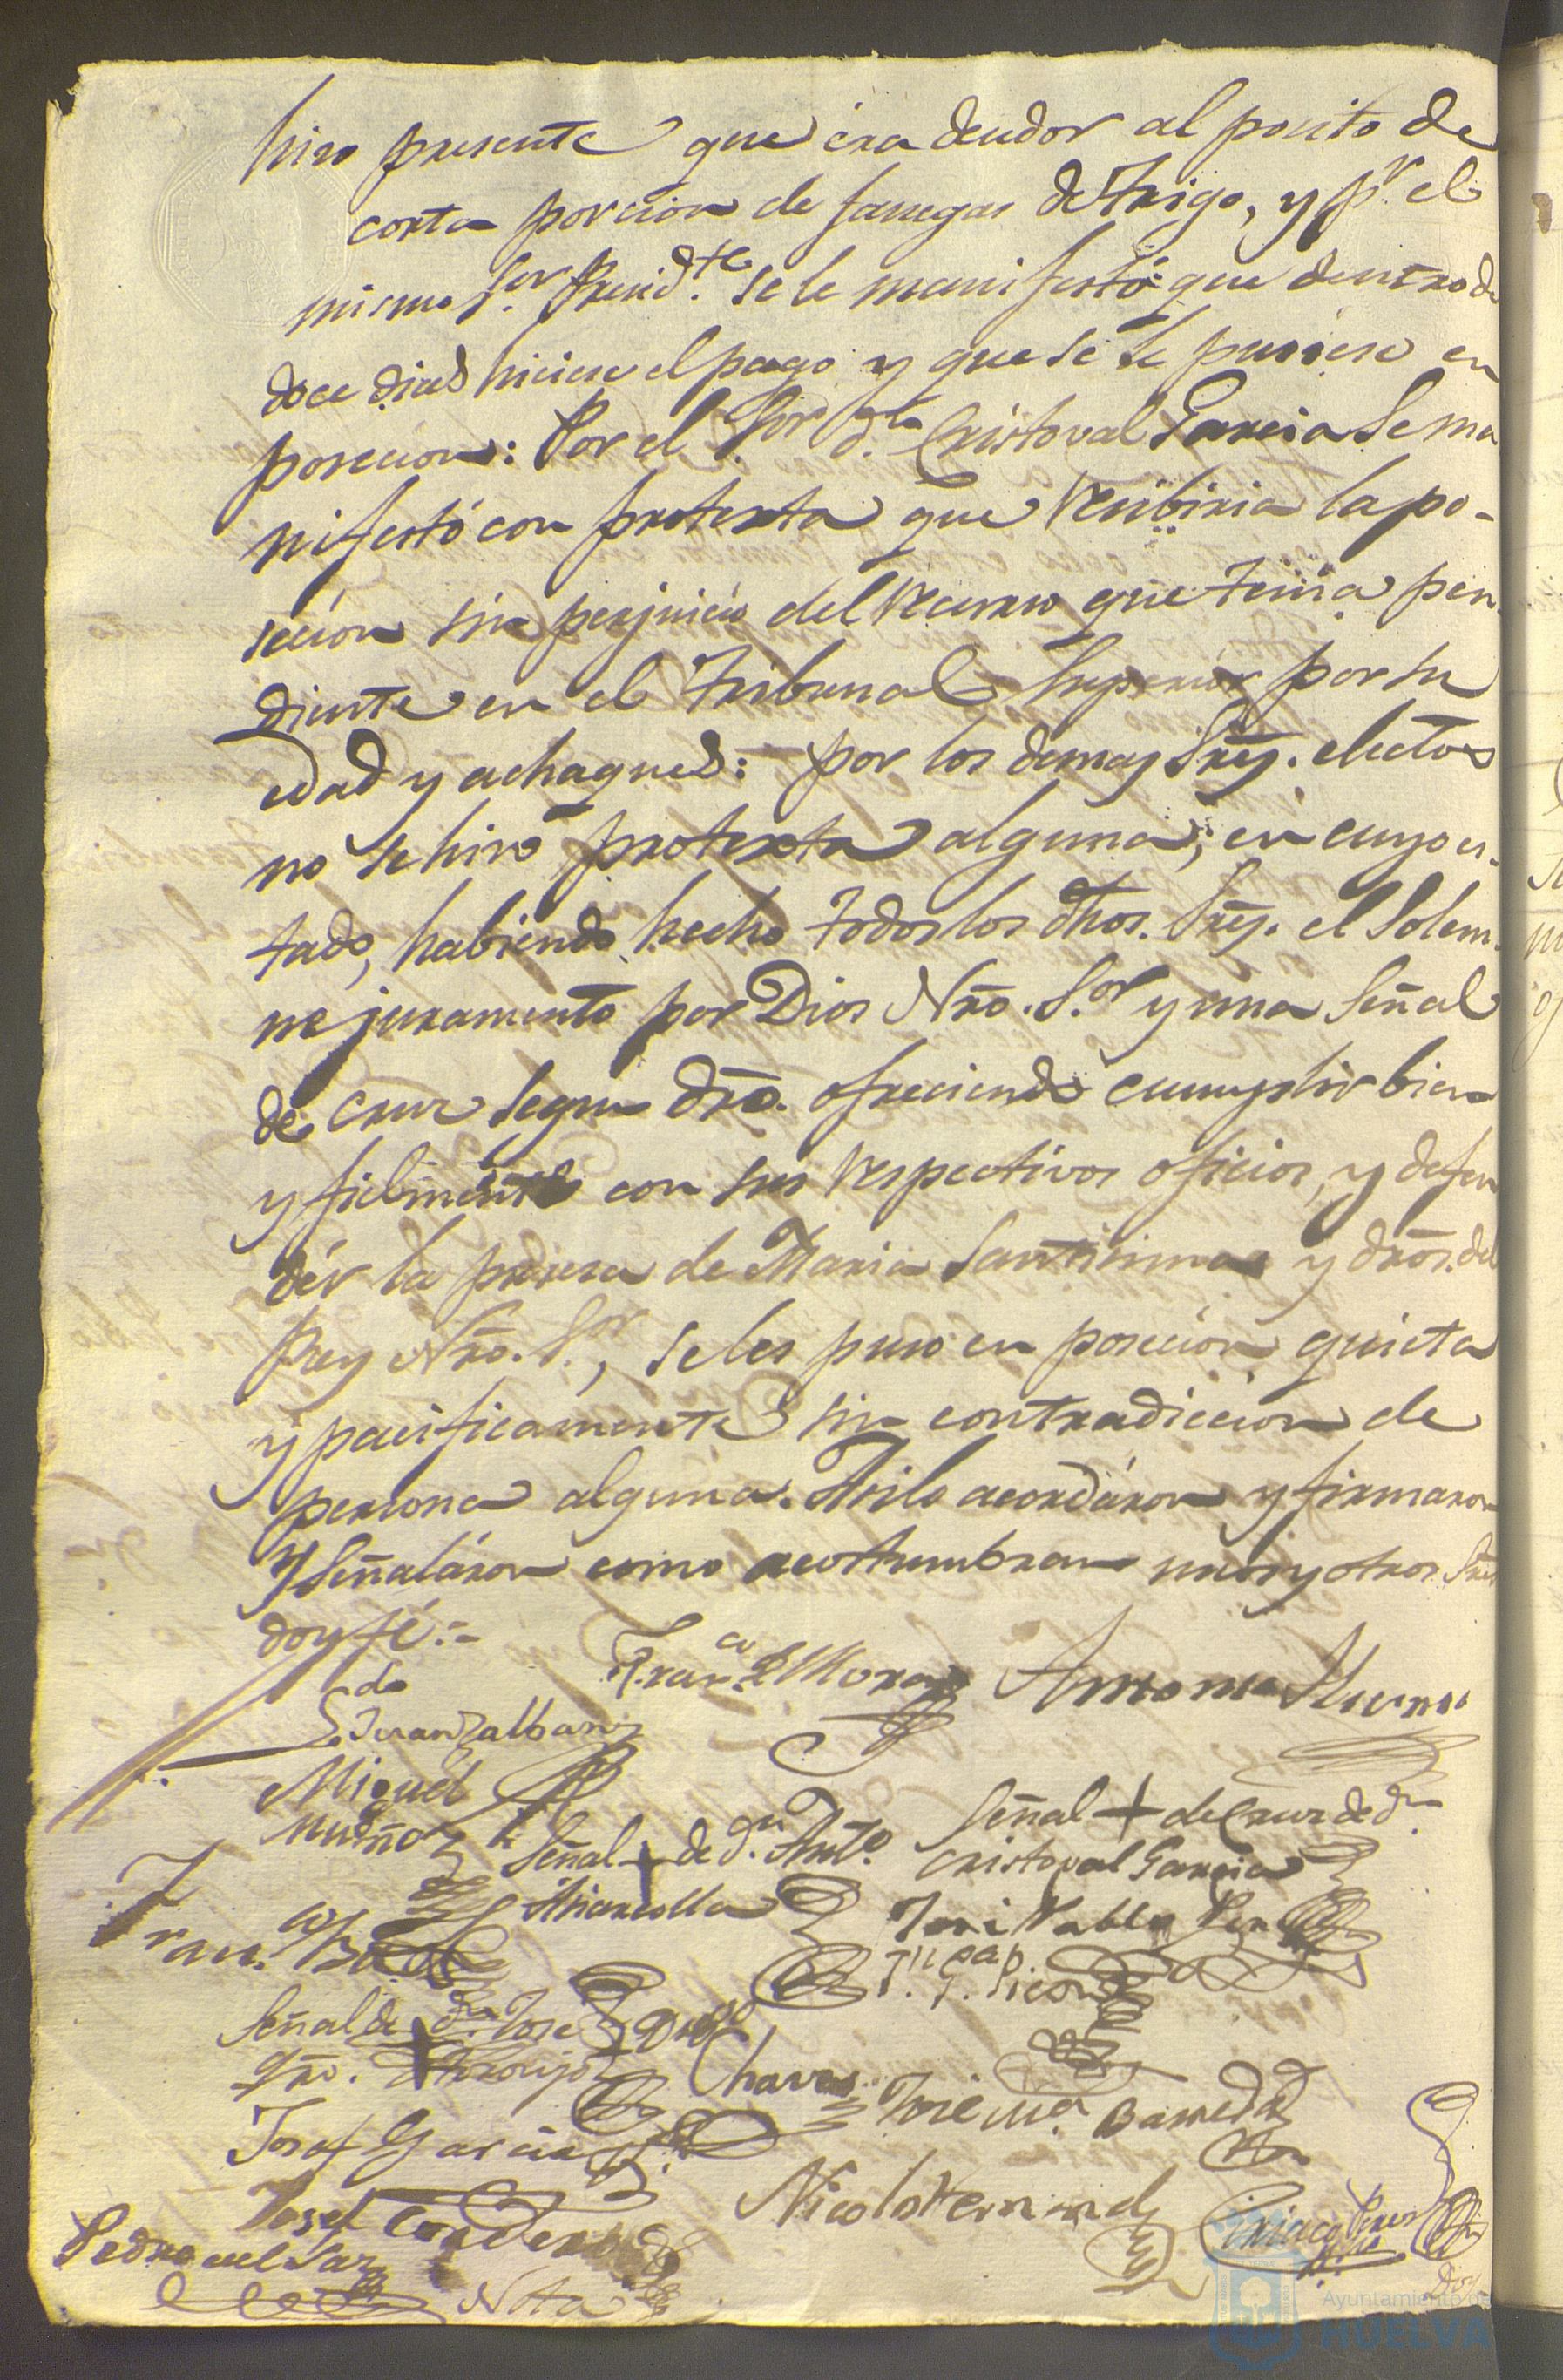 hizo presente que era deudor al posito de
corta porcion de fanegas de trigo, y p.r el
mismo S.or Presid.te se le manifestó que dentro de
doce dias hiciese el pago y que se le pusiese en
posecion: Por el S.or d.n Cristoval Garcia se ma
nifestó con protexta que recibiria la po-
secion sin perjuicio del recurso que tenia pen
diente en el tribunal Superior por su
edad y achaques: por los demas Sres. electos
no se hizo protexta alguna; en cuyo es-
tado, habiendo hecho todos los dhos. Sres. el Solem-
ne juramento por Dios Nro. S.or y una Señal
de cruz segun dro. ofreciendo cumplir bien
y fielmente con sus respectivos oficios, y defen
der la pureza de Maria Santisima y dros. del
Rey Nro. S.or, se les puso en posecion quieta
y pacificamente sin contradiccion de
persona alguna. Asi lo acordáron y firmaron
y Señaláron como acostumbran unos y otros Sres
doy fé:-
Fran.co de Mora Antonio
Ldo Juan
Miguel
Muñoz
Señal + de Cruz de d.n
Cristoval Garcia
Señal + de d.n Ant.o
Fran.co
José Pablo Perez
Señal de d.n Jose
Diego
Chaves
José Ma. Barreda
Josef Garcia
Nicolas Hernandez
Josef Cordero
Ciriaco Perez
Pedro del Saz
Nota
Doy
Ayuntamiento de
HUELVA